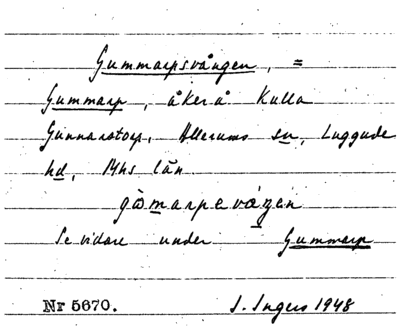 Gummarpsvången, =
Gummarp, åker å Kulla
Gunnarstorp, Allerums sn, Luggude
hd, Mhs län
gòmarpevágen
Se vidare under Gummarp
Nr 5670. I. Ingers 1948